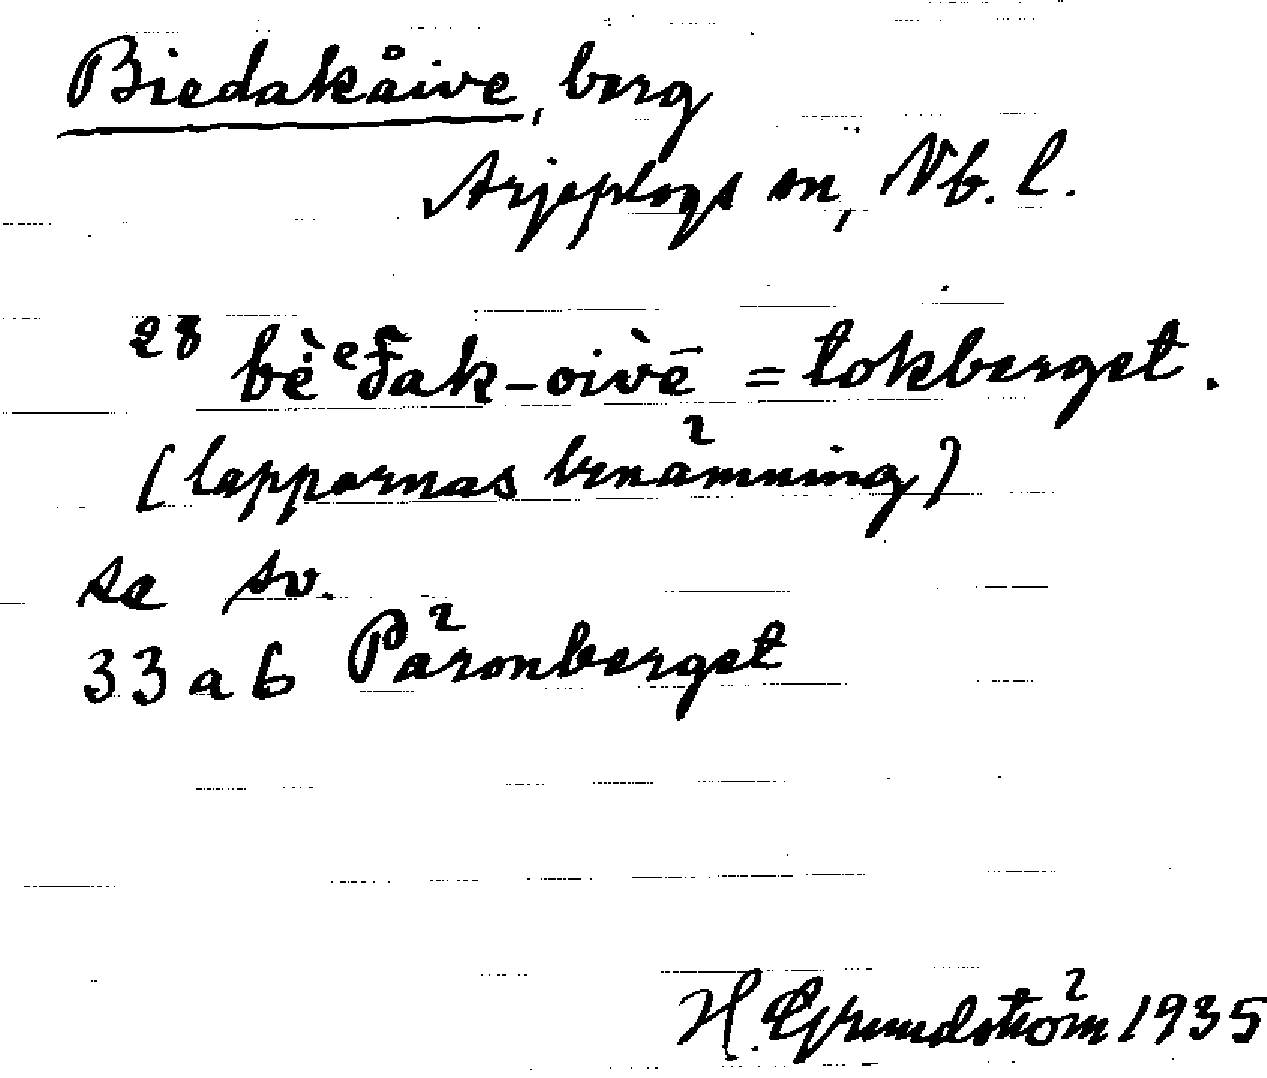 Biedakåive, berg
Arjeplogs sn, Nb. l.
28 bẹ̀ᵉđak-oivē = tokberget.
(lapparnas benämning)
se sv.
33 a 6 Päronberget
H. Grundström 1935